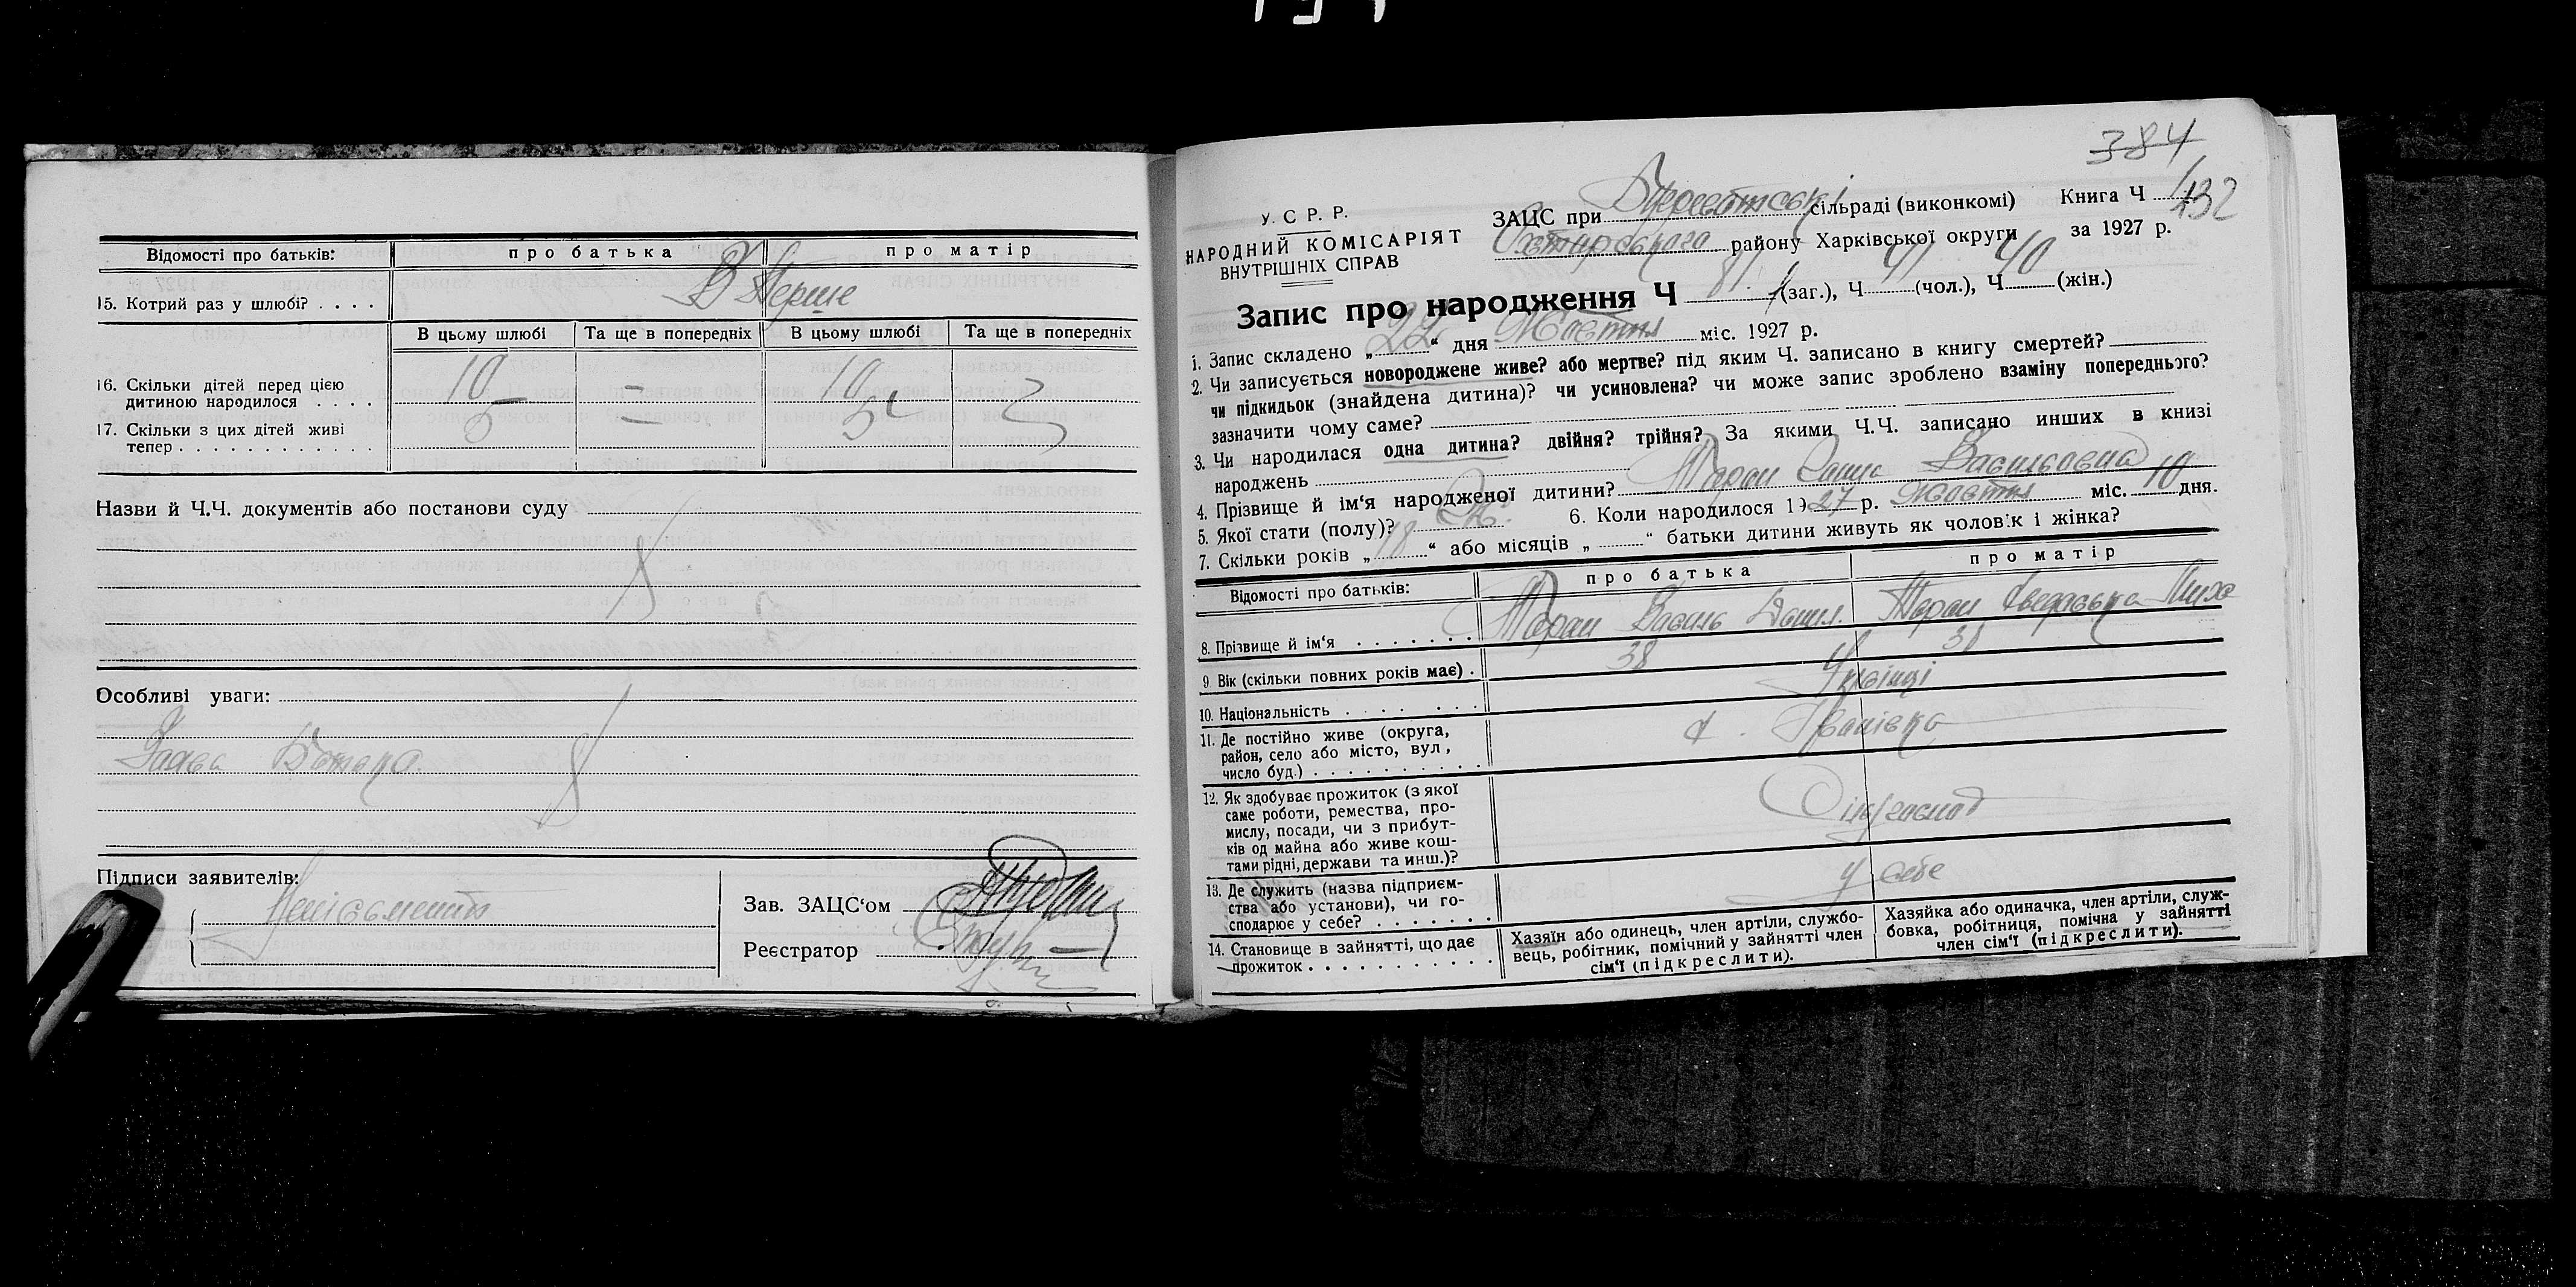 Відомості про батьків: про батька про матір
15. Котрий раз у шлюбі? . . . . В Перше
В цьому шлюбі Та ще в попередніх В цьому шлюбі Та ще в попередніх
16. Скільки дітей перед цією
дитиною народилося . . . . 10 — 10
17. Скільки з цих дітей живі
тепер . . . . . . . . . . . . 5 — 5
Назви й Ч.Ч. документів або постанови суду
Особливі уваги:
Заява Батька.
Підписи заявителів:
Неписьменний
Зав. ЗАЦС‘ом
Реєстратор
384
У. С Р. Р.
НАРОДНИЙ КОМІСАРІЯТ
ВНУТРІШНІХ СПРАВ
ЗАЦС при сільраді (виконкомі) Книга Ч 132
Охтирського району Харківської округи за 1927 р.
Запис про народження Ч 81 (заг.), Ч 41 (чол.), Ч 40 (жін.)
1. Запис складено „22“ дня Жовтня міс. 1927 р.
2. Чи записується новороджене живе? або мертве? під яким Ч. записано в книгу смертей?
чи підкидьок (знайдена дитина)? чи усиновлена? чи може запис зроблено взаміну попереднього?
зазначити чому саме?
3. Чи народилася одна дитина? двійня? трійня? За якими Ч.Ч. записано инших в книзі
народжень
4. Прізвище й ім‘я народженої дитини? Таран Васильовна
5. Якої стати (полу)? Ж. 6. Коли народилося 1927 р. Жовтня міс. 10 дня.
7. Скільки років „18“ або місяців „ “ батьки дитини живуть як чоловік і жінка?
Відомості про батьків: про батька про матір
8. Прізвище й ім‘я . . . . . . . Таран Василь Данил. Таран Миха
9 Вік (скільки повних років має) . 38 38
10. Національність . . . . . . . Українці
11. Де постійно живе (округа,
район, село або місто, вул,
число буд.) . . . . . . . . . . . Іванівка
12. Як здобуває прожиток (з якої
саме роботи, ремества, про-
мислу, посади, чи з прибут-
ків од майна або живе кош-
тами рідні, держави та инш.)?
13. Де служить (назва підприєм-
ства або установи), чи го-
сподарює у себе? . . . . . . . . у себе
14. Становище в зайнятті, що дає
прожиток . . . . . . . . . . .
Хазяїн або одинець, член артіли, службо-
вець, робітник, помічний у зайнятті член
сім‘ї (підкреслити).
Хазяйка або одиначка, член артіли, служ-
бовка, робітниця, помічна у зайнятті
член сім‘ї (підкреслити).